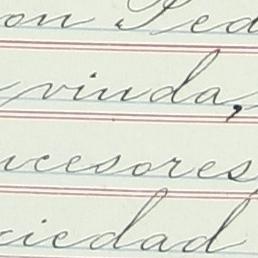 on Ped
vinda,
ucesores
ciedad